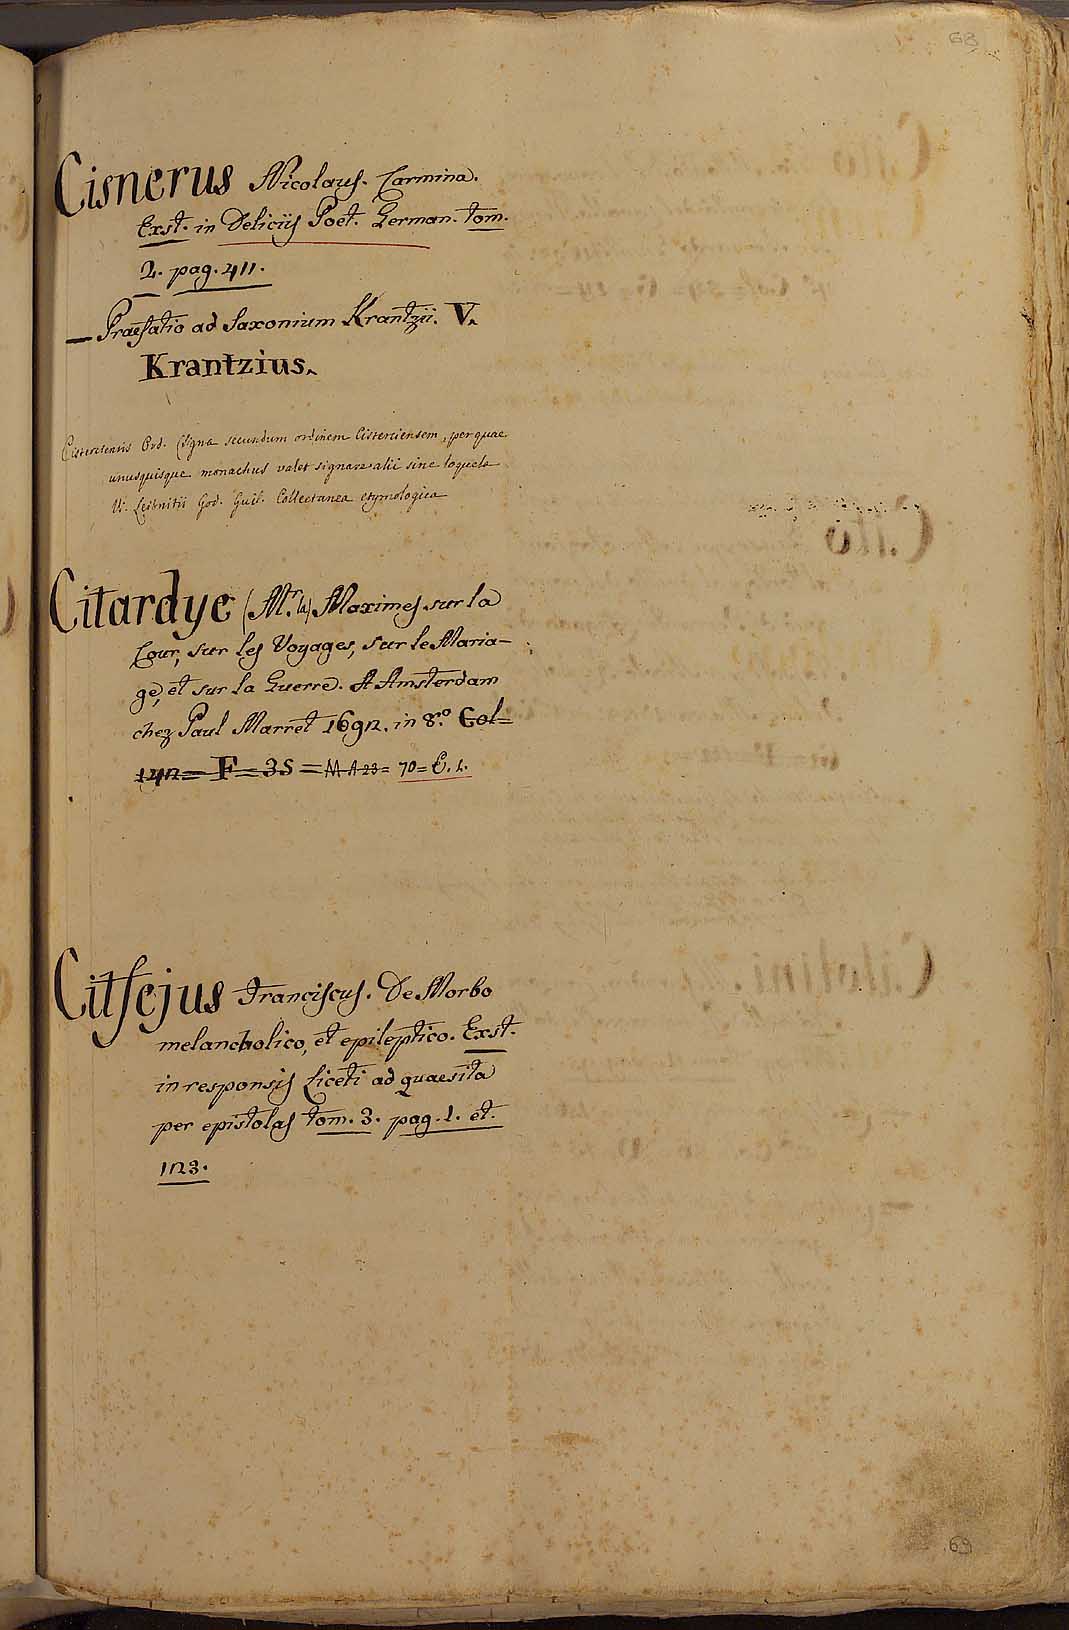 68
Cisnerus Nicolaus. Carmina.
Exst. in Deliciis Poet. German. tom.
2. pag. 411.
— Praefatio ad Saxonium Krantzii. V.
Krantzius.
Cisterciensis Ord. Signa secundum ordinem Cisterciensem, per quae
unusquisque monachus valet signare alii sine loquela
V. Leibnitii God. Guil. Collectanea etymologica
Citardye (Mr. la) Maximes sur la
Cour, sur les Voyages, sur le Maria-
ge, et sur la Guerre. A Amsterdam
chez Paul Marret 1692. in 8.o Col=
142= F= 35 = MA 23= 70= E. 1.
Citsejus Franciscus. De Morbo
melancholico, et epileptico. Exst.
in responsis Liceti ad quaesita
per epistolas tom. 3. pag. 1. et.
123.
69